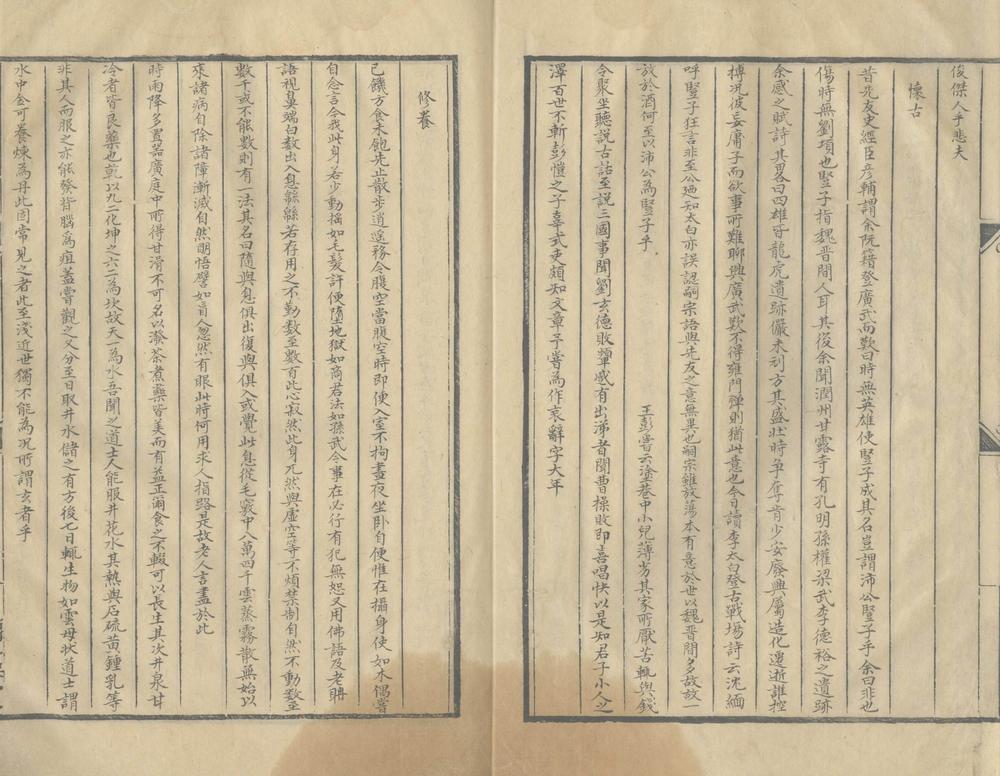 俊傑人乎悲夫
懷古
昔先友史經臣彥輔謂余阮籍登廣武而歎曰時無英雄使豎子成其名豈謂沛公豎子乎余曰非也
傷時無劉項也豎子指魏晉間人耳其後余聞潤州甘露寺有孔明孫權梁武李德裕之遺跡
余感之賦詩其畧曰四雄皆龍虎遺跡儼未刓方其盛壯時爭奪肯少安廢興屬造化遷逝誰控
摶况彼妄庸子而欲事所難聊興廣武歎不得雍門彈則猶此意也今日讀李太白登古戰場詩云沈緬
呼豎子狂言非至公廼知太白亦誤認嗣宗語與先友之意無異也嗣宗雖放蕩本有意於世以魏晉間多故故一
放於酒何至以沛公為豎子乎
王彭嘗云塗巷中小兒薄劣其家所厭苦輒與錢
令聚坐聽說古話至說三國事聞劉玄德敗顰慼有出涕者聞曹操敗即喜唱快以是知君子小人之
澤百世不斬彭愷之子韋式吏頗知文章予嘗為作哀辭字大年
修養
已饑方食未飽先止散步逍遙務令腹空當腹空時即便入室不拘晝夜坐卧自便惟在攝身使如木偶嘗
自念言今我此身若少動搖如毛髮許便墮地獄如商君法如孫武令事在必行有犯無恕又用佛語及老聃
語視鼻端白數出入息緜緜若存用之不勤數至數百此心寂然此身兀然與虛空等不煩禁制自然不動數至
數千或不能數則有一法其名曰隨與息俱出復與俱入或覺此息從毛竅中八萬四千雲蒸霧散無始以
來諸病自除諸障漸滅自然明悟譬如盲人忽然有眼此時何用求人指路是故老人言盡於此
時雨降多置器廣庭中所得甘滑不可名以潑茶煮藥皆美而有益正爾食之不輟可以長生其次井泉甘
冷者皆良藥也乾以九二化坤之六二為坎故天一為水吾聞之道士人能服井花水其熱與石硫黃鍾乳等
非其人而服之亦能發背腦為疽蓋嘗觀之又分至日取井水儲之有方後七日輒生物如雲母狀道士謂
水中金可養煉為丹此固常見之者此至淺近世獨不能為况所謂玄者乎